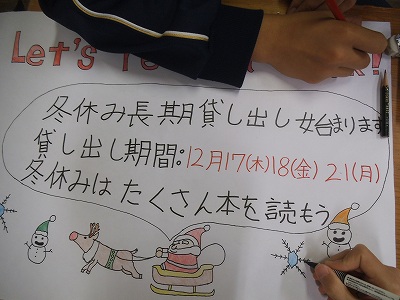 Let's
冬休み長期貸し出し始まります
貸し出し期間:12月17(木)18(金)21(月)
冬休みはたくさん本を読もう